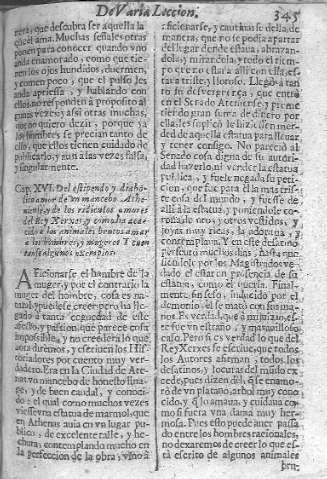 De Varia Leccion.
345
que el ama. Muchas señales otras
ponen para conocer quando vno
anda enamorado, como que tie-
nen los ojos hundidos, duermen,
y comen poco, que el pulso les
anda apriessa, y hablando con
ellos, no responden à proposito al-
gunas vezes; assi otras muchas,
que no quiero dezir, porque ya
los hombres se precian tanto de
ello, que ellos tienen cuidado de
publicarlo, y aun a las vezes, falsa,
y
Cap. XVI. Del
so amor de un mancebo Athe-
de los ridiculos amores
del Rey Xerxes; y como ha acae-
cido a los animales brutos amar
a los hombres, y mugeres. Y cuen-
algunos exemplos.
Aficionarse el hombre de la
muger, y por el contrario la
muger del hombre, cosa es na-
tural, y puedese creer; pero ha lle-
gado à tanto ceguedad de este
afecto, y passion, que parece cosa
impossible, y no creedera lo que
aora diremos, y escriven los His-
toriadores por cuento muy ver-
dadero. Era en la Ciudad de Ate-
nas vn mancebo de honesto lina-
ge, y de buen caudal, y conoci-
do: el qual como muchas vezes
viesse vna estatua de marmol, que
en Athenas auia en vn lugar pu-
blico, de excelente talle, y he-
chura; contemplando mucho en
la perfeccion de la obra, vino à
aficionarse, y
manera, que no se podia apartar
del lugar donde estaua, abraçan-
dola, y mirandola, y todo el tiem-
po
en el Senado Ateniense, y prome-
tiendo gran suma de dinero por
ella, les suplicò le hiziessen mer-
ced de aquella estatua para lleuar,
y tener consigo. No pareciò al
Senado cosa digna de su autori-
dad hazerlo, ni vender la estatua
publica, y fuele negada su peti-
cion, que fue para èl la mas tris-
te cosa del mundo, y fuesse de
allì à la estatua, y poniendole co-
rona de oro, y otros vestidos, y
joyas muy ricas, la adoraua, y
contemplaua. Y en este desatino
muchos dias, hasta que
dado el estar en presencia de su
estatua, como el queria. Final-
mente, sin seso, inducido por el
demonio, el se matò con sus ma-
nos. Es verdad, que
se fue vn estraño, y marauilloso
caso. Pero si es verdad lo que del
Rey Xerxes se escriue, que todos
los Autores afirman, todos los
desatinos, y locuras del mundo ex-
cede, pues dizen dèl, que se enamo-
rò de vn platano, arbol muy cono-
cido, y que lo amaua, y cuidaua co-
mo si fuera vna dama muy her-
mosa. Pues esto puede auer passa-
do entre los hombres racionales,
no dexaremos de creer lo que es-
tà escrito de algunos animales
bru-